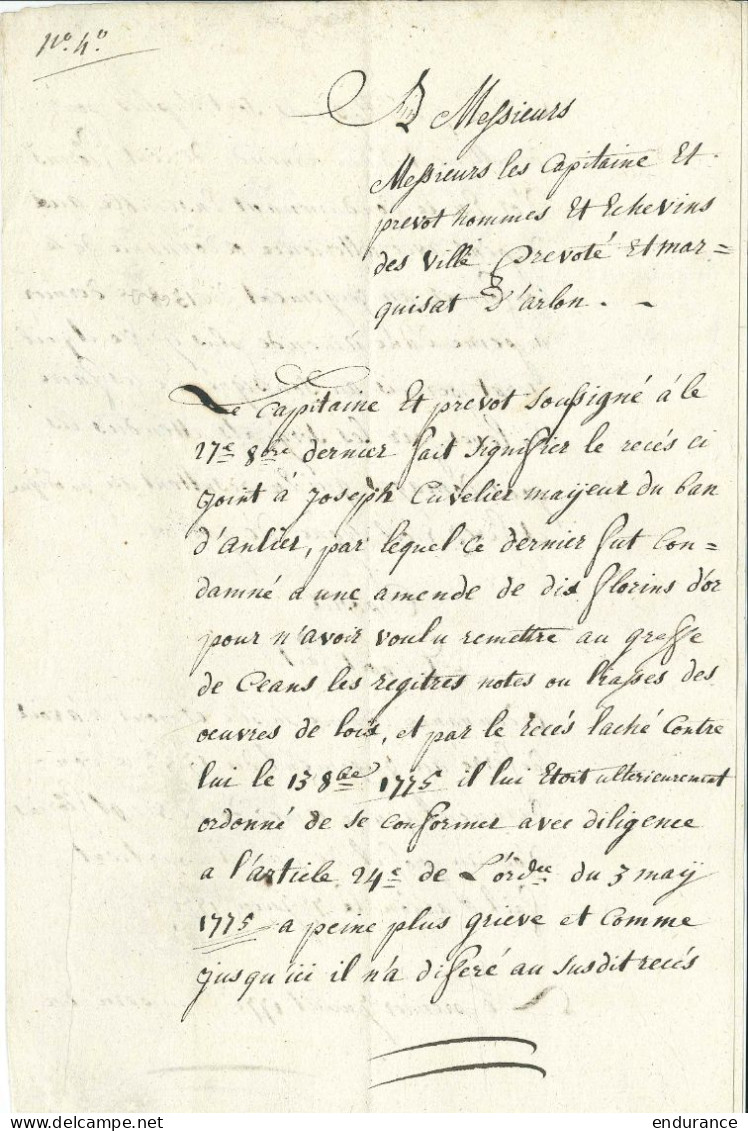 N.o 4.o
A Messieurs
Messieurs les Capitaine Et
prevot hommes Et Echevins
des Ville Prevoté Et mar=
quisat D'arlon . -
Le Capitaine Et prevot Soussigné à le
17e 8bre dernier fait Signifier le recés ci
joint à Joseph Cuvelier maijeur du ban
d'anlier, par lequel Ce dernier fut Con=
damné a une amende de dix florins d'or
pour n'avoir voulu remettre au greffe
de Ceans les regitres notes ou liasses des
oeuvres de lois, et par le recés laché Contre
lui le 13 8bre 1775 il lui Etoit ulterieurement
ordonné de se Conformer avec diligence
a l'article 24e de L'ordce du 3 maij
1775 a peine plus grieve et Comme
jusqu'ici il n'a diferé au Susdit recés
endurance
DELCAMPE.NET